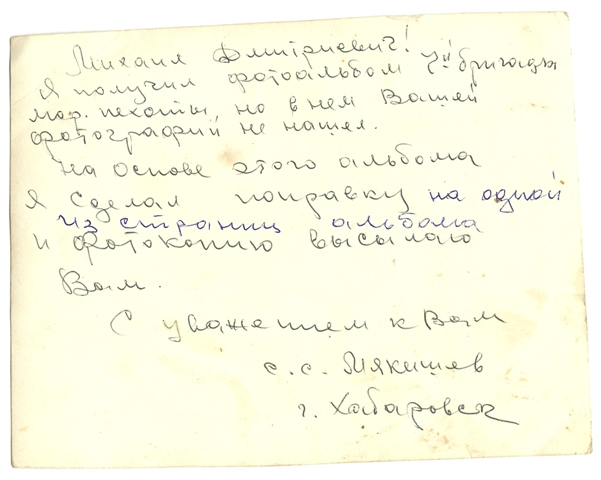 Михаил Дмитриевич!
Я получил фотоальбом 7й бригады
мор. пехоты, но в нем Вашей
фотографий не нашел.
На основе этого альбома
я сделал поправку на одной
из страниц альбома
и фотокопию высылаю
Вам.
С уважением к Вам
с.с. Мякишев
г. Хабаровск